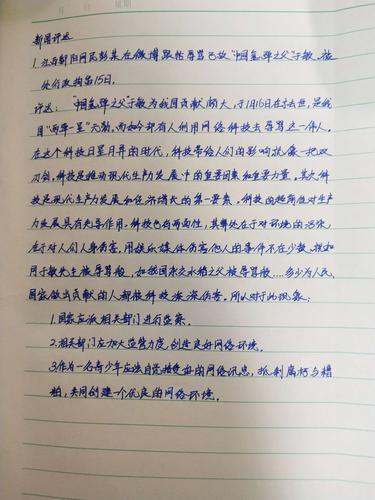 新闻评述
1.辽宁朝阳网民彭某在微博跟帖辱骂已故"中国氢弹之父"于敏,被
处行政拘留15日。
评述:"中国氢弹之父"于敏为我国贡献的大,于1月16日在去世,是我
国"两弹一星"元勋,而如今却有人利用网络科技去辱骂这一伟人。
在这个科技日星月异的时代,科技带给人们的影响就像一把双
刃剑。科技是推动现代生产力发展中的重要因素和重要力量。其次科
技是现代生产力发展和经济增长的第一要素。科技的超前性对生产
力发展具有先导作用。科技也有两面性,其弊处在于对环境的污染,
在于对人们人身伤害。用娱乐媒体伤害他人的事件不在少数,就如
同于敏先生被辱骂般,如我国杂交水稻之父被辱骂般……多少为人民、
国家做出贡献的人都被科技深深伤害。所以对于此现象:
1.国家应派相关部门进行监察。
2.相关部门应加大监管力度,创建良好网络环境。
3.作为一名青少年应该自觉接受好的网络讯息,抵制腐朽与糟
粕,共同创建一个优良的网络环境。